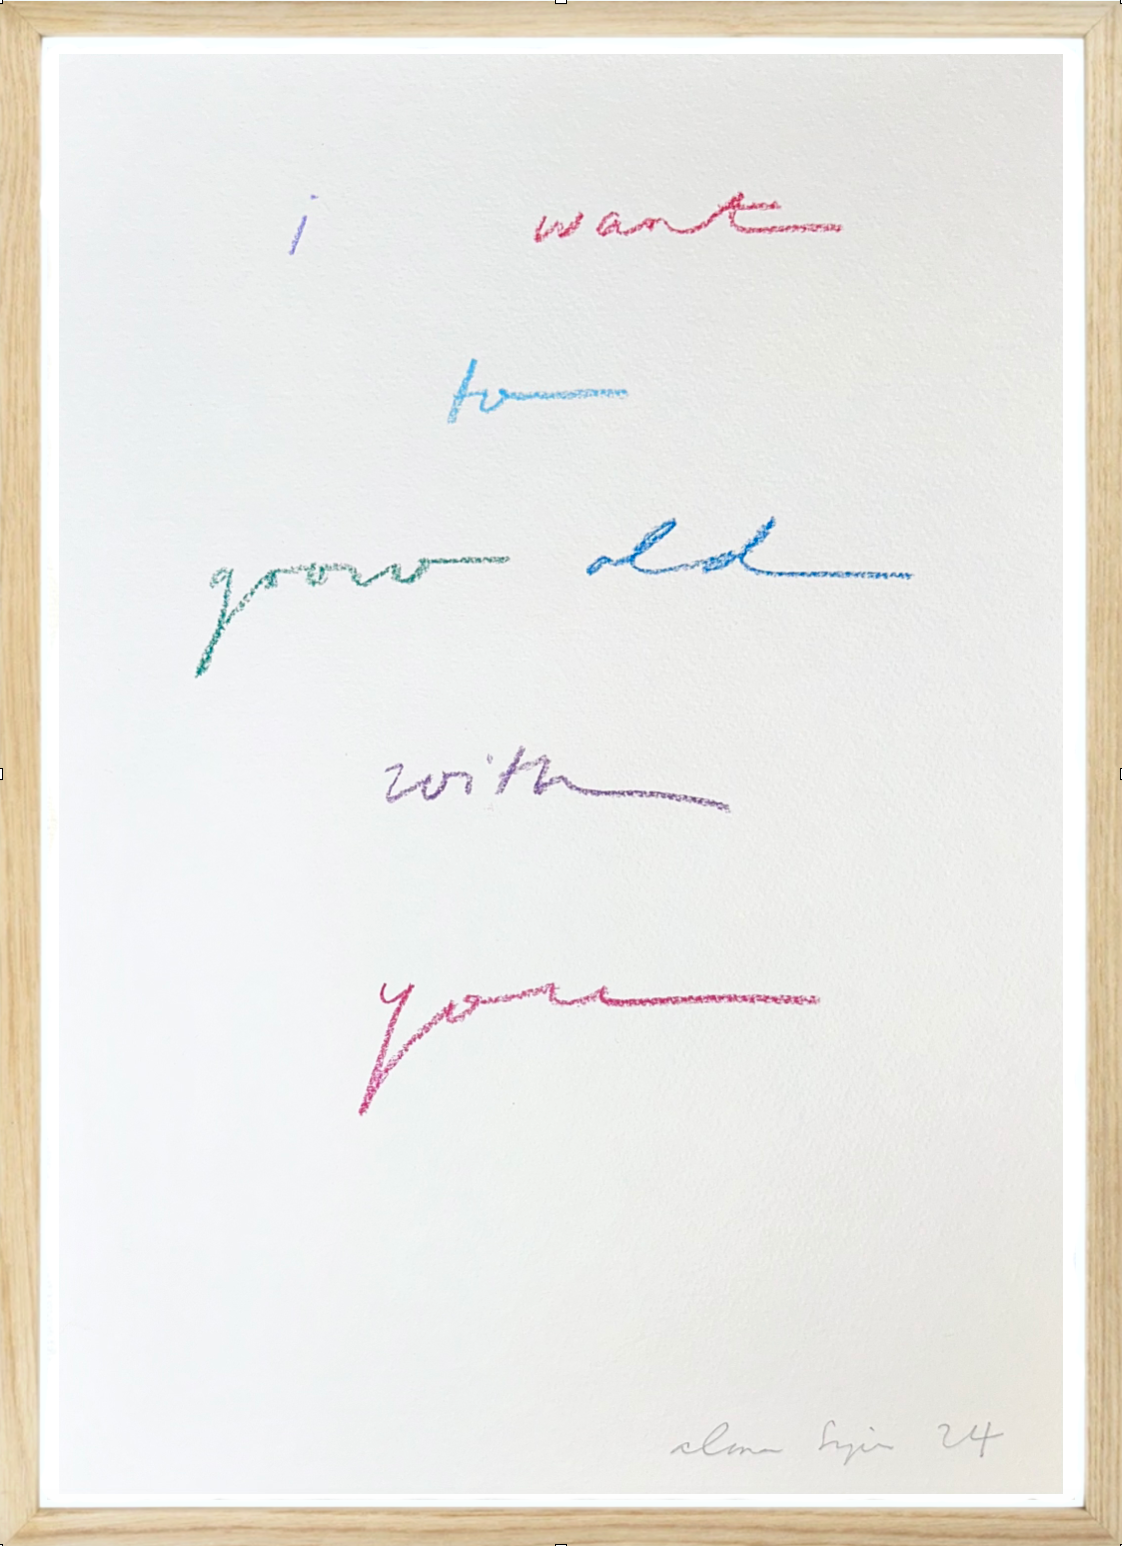 i want
to
grow old
with
you
24